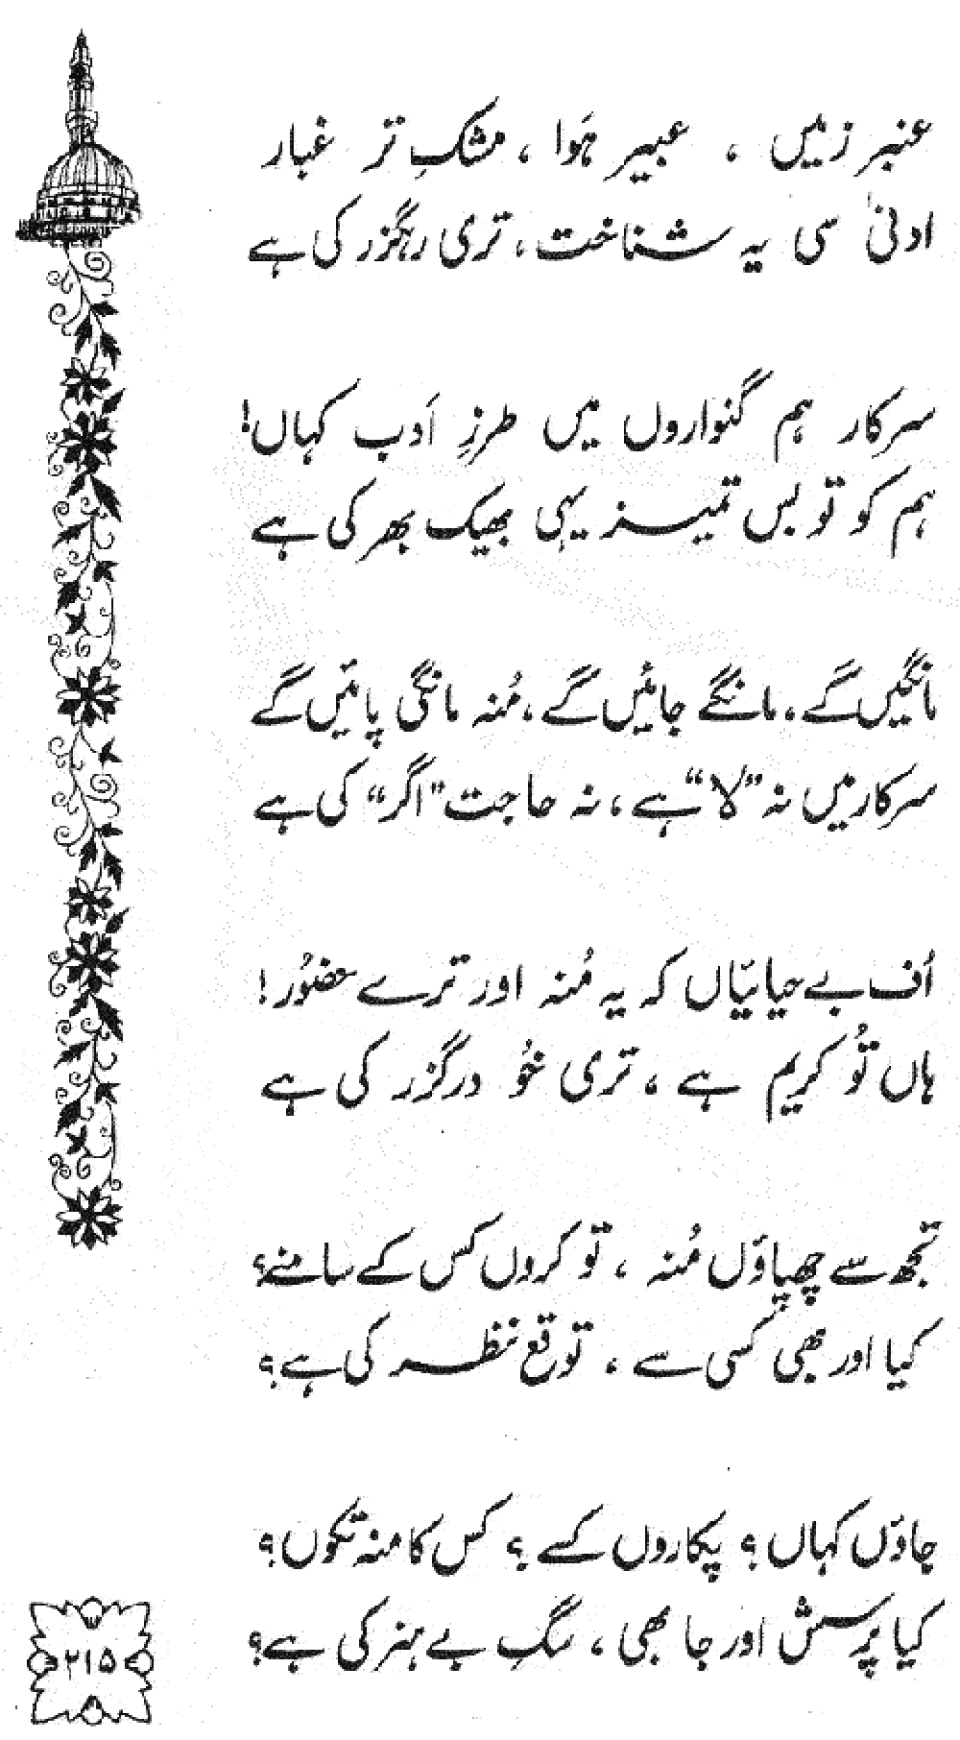 عنبر زمیں ، عبیر ہَوا ، مشکِ تر غبار
ادنیٰ سی یہ شناخت ، تری رہگزر کی ہے
سرکار ہم گنواروں میں طرزِ اَدب کہاں!
ہم کو تو بس تمیز یہی بھیک بھر کی ہے
مانگیں گے ، مانگے جائیں گے ، مُنہ مانگی پائیں گے
سرکار میں نہ ”لا“ ہے ، نہ حاجت ”اگر“ کی ہے
اُف بے حیائیاں کہ یہ مُنہ اور ترے حضُور !
ہاں تُو کریم ہے ، تری خُو درگزر کی ہے
تجھ سے چھپاؤں مُنہ ، تو کروں کس کے سامنے؟
کیا اور بھی کسی سے ، توقع نظر کی ہے؟
جاؤں کہاں ؟ پکاروں کسے ؟ کس کا منہ تکوں ؟
کیا پرسش اور جا بھی ، سگِ بے ہنر کی ہے؟
۲۱۵